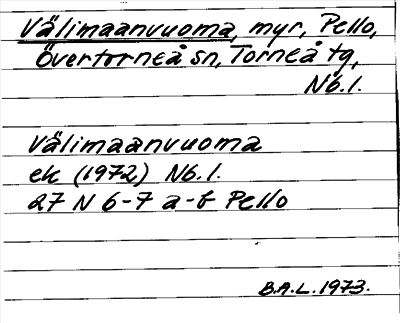 Välimaanvuoma, myr, Pello,
Övertorneå sn, Torneå tg,
Nb.l.
Välimaanvuoma
ek (1972) Nb.l.
27 N 6-7 a-b Pello
B.A.L. 1973.